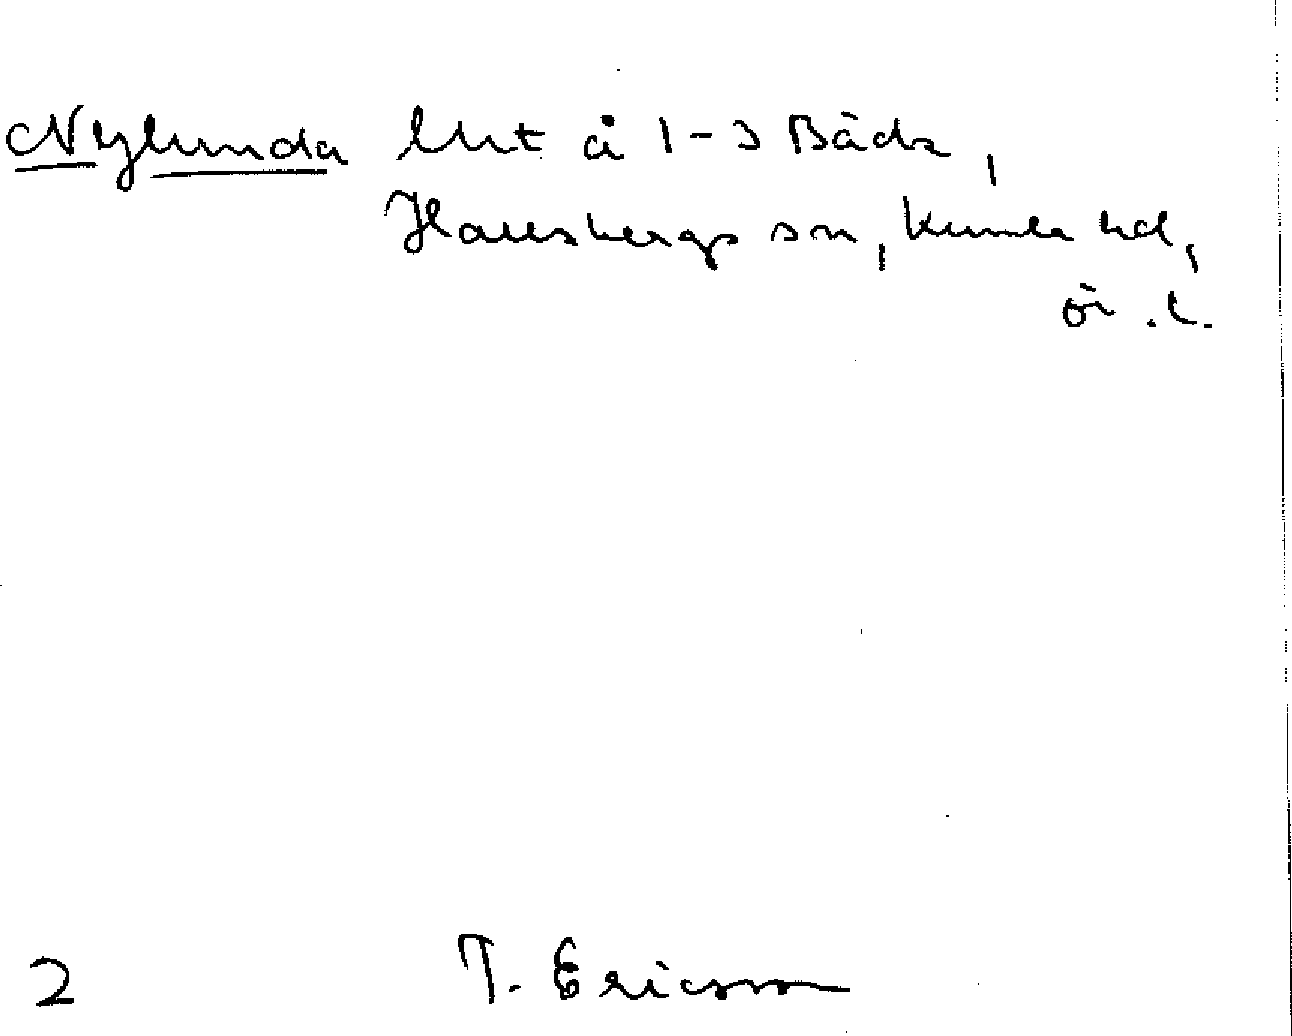 Nylunda lht å 1-3 Bäck,
Hallsbergs sn, Kumla hd,
ör. l.
2 T. Ericsson